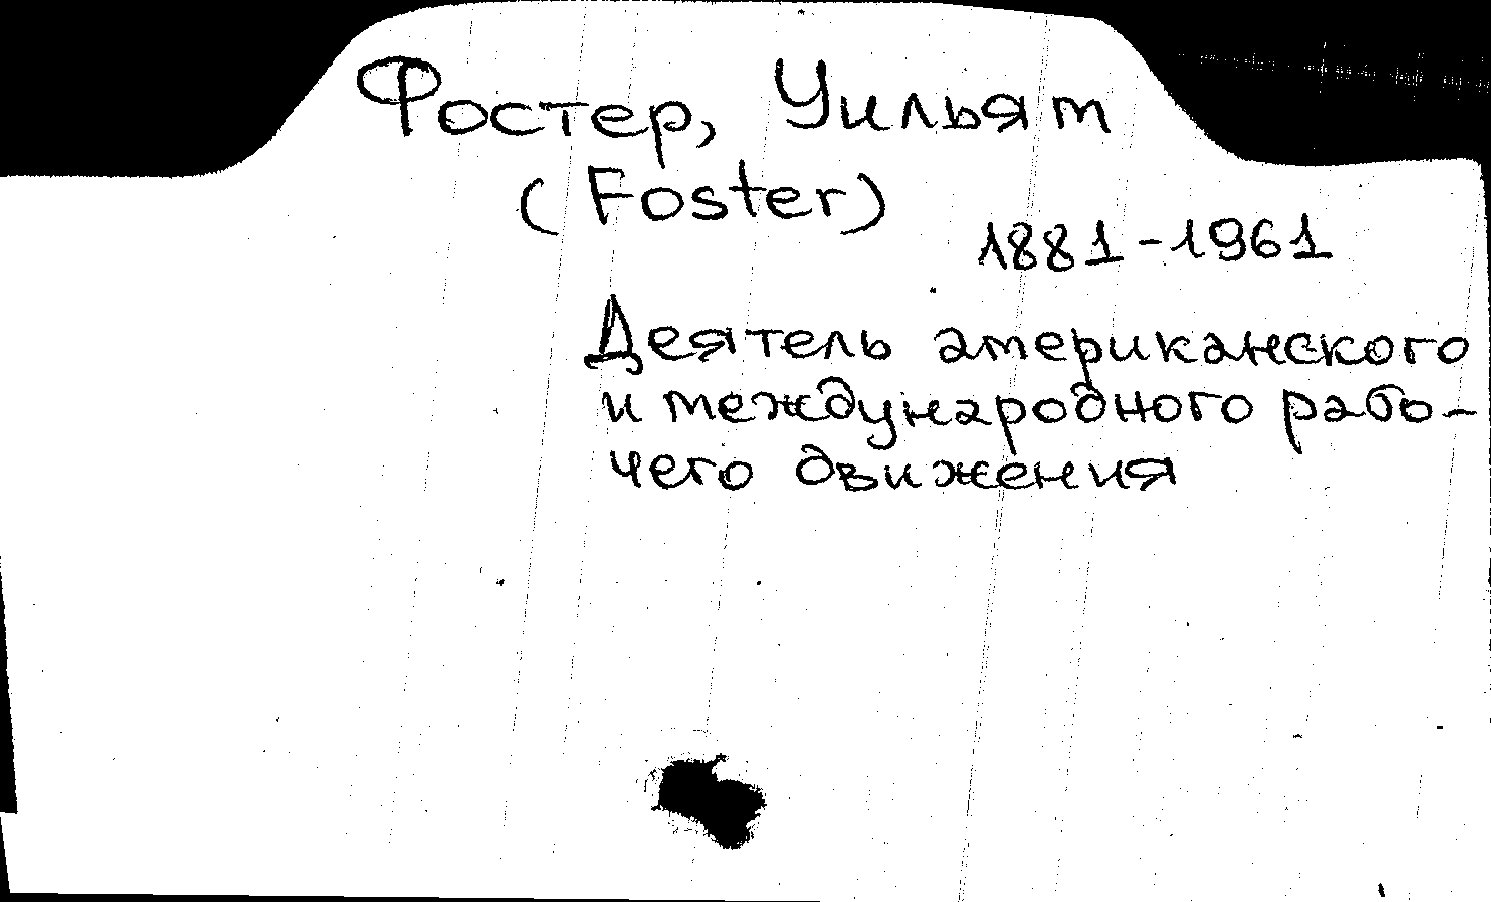 Фостер, Уильям
(Foster)
1881-1961
Деятель американского
и международного рабо-
чего движения